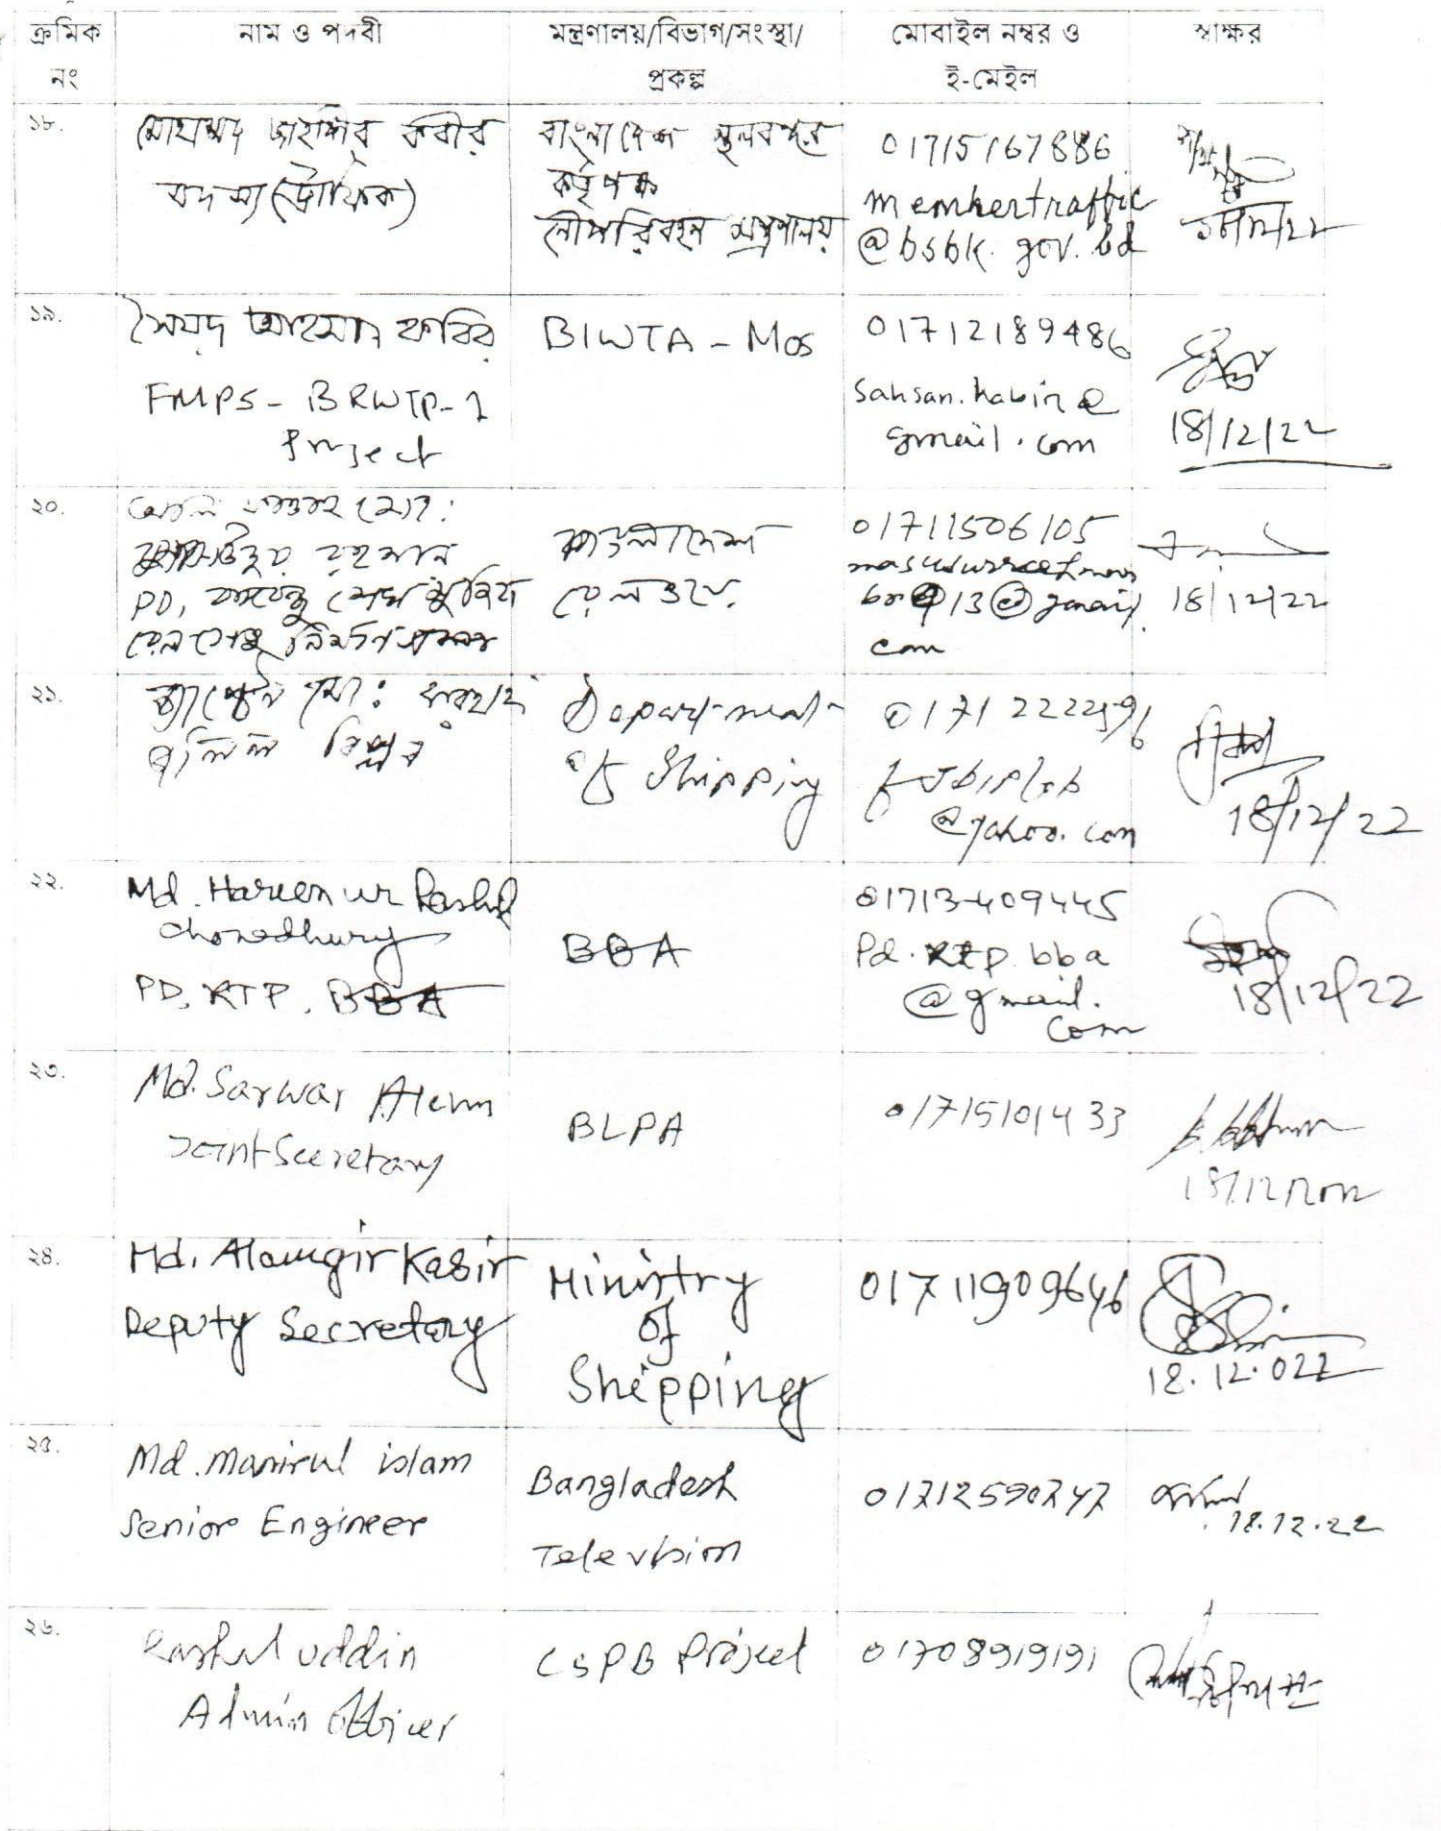 ক্রমিক নং
নাম ও পদবী
মন্ত্রণালয়/বিভাগ/সংস্থা/
প্রকল্প
মোবাইল নম্বর ও
ই-মেইল
স্বাক্ষর
১৮.
মোহাম্মদ জাহাঙ্গীর কবীর
সদস্য (ট্রাফিক)
বাংলাদেশ স্থলবন্দর
কর্তৃপক্ষ
নৌপরিবহন মন্ত্রণালয়
01715167886
membertraffic
@bsbk.gov.bd
১৯.
সৈয়দ আহসান কবির
FMPS - BRWTP-1
Project
BIWTA - Mos
01712189486
sahsan.kabir@
gmail.com
18/12/22
২০.
রহমান
PD,
বাংলাদেশ
রেলওয়ে.
01711506105
com
18/12/22
২১.
ক্যাপ্টেন মোঃ
Department
of Shipping
@yahoo.com
18/12/22
২২.
Md. Haroon ur Rashid
Chowdhury
PD, KTP, BBA
BBA
01713-409445
Pd.ktp.bba
@gmail.
com
18/12/22
২৩.
Md. Sarwar Alam
Joint Secretary
BLPA
01715101433
২৪.
Md. Alamgir Kabir
Deputy Secretary
Ministry
of
Shipping
01711909646
18.12.022
২৫.
Md. Manirul islam
Senior Engineer
Bangladesh
Television
01712590747
18.12.22
২৬.
Rashid uddin
Admin Officer
CSPB Project
01708919191